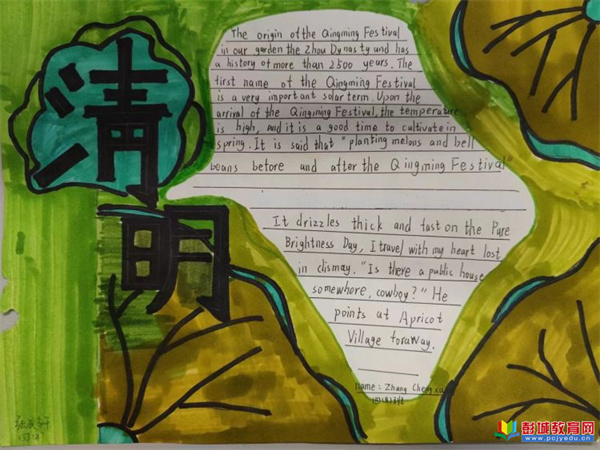 清
明
The origin of the Qingming Festival
in our garden the Zhou Dynasty and has
a history of more than 2300 years. The
first name of the Qingming Festival
is a very important solar term. Upon the
arrival of the Qingming Festival, the temperature
is high, and it is a good time to cultivate in
spring. It is said that "planting melons and bell
beans before and after the Qingming Festival"
It drizzles thick and fast on the Pure
Brightness Day, I travel with my heart lost
in dismay. "Is there a public house
somewhere, cowboy?" He
points at Apricot
Village faraway.
name: Zhang Cheng
彭城教育网
www.pcjyedu.cn